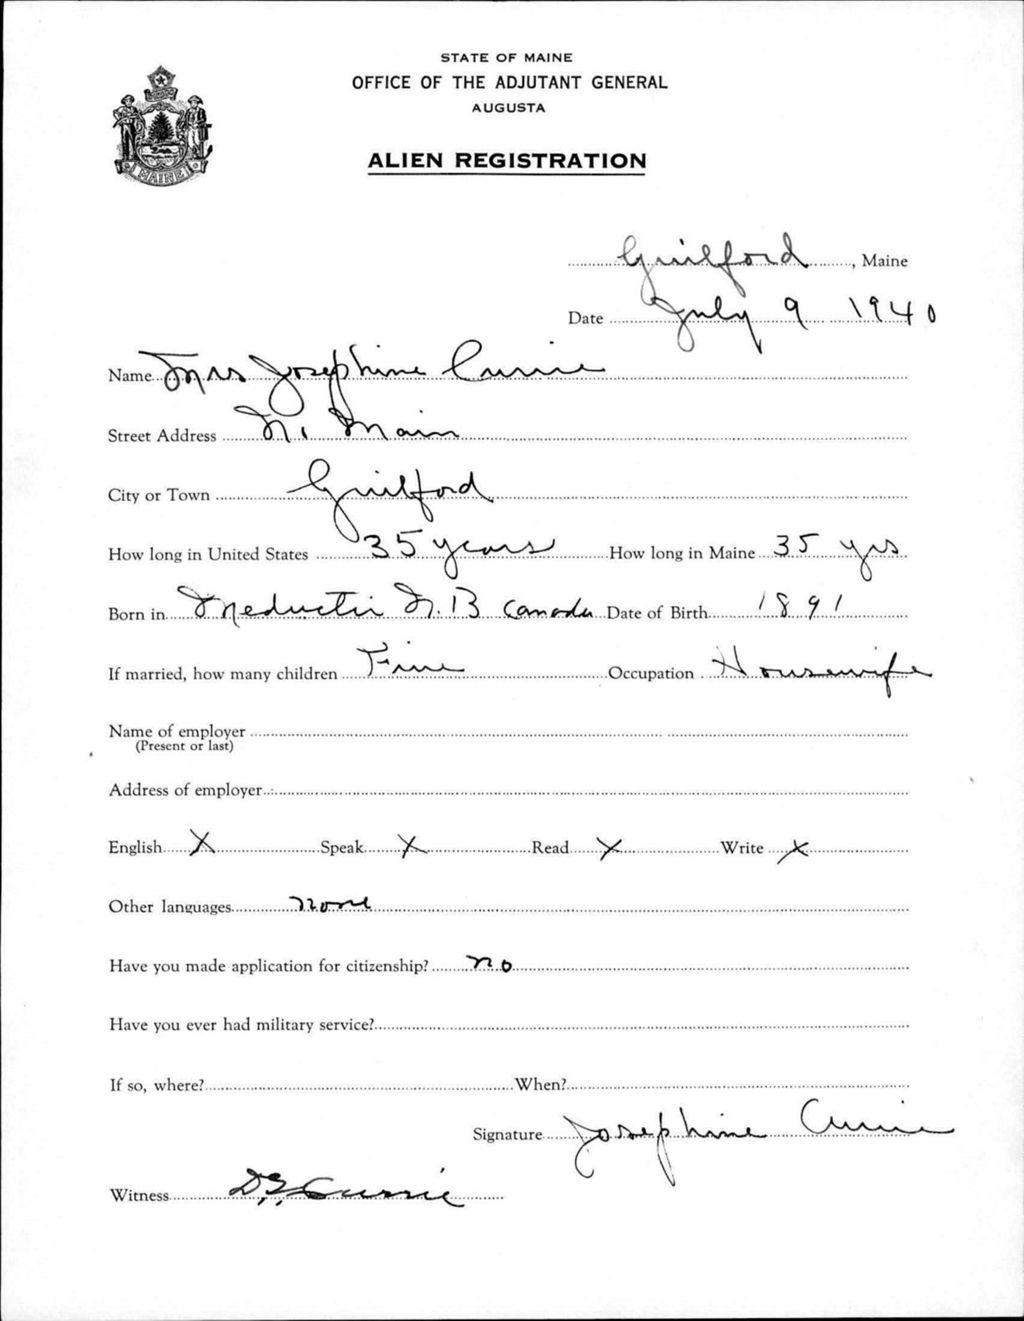 STATE OF MAINE
OFFICE OF THE ADJUTANT GENERAL
AUGUSTA
ALIEN REGISTRATION
MAINE
Guilford, Maine
Date July 9 1940
Name Mrs Josephine Currie
Street Address N. Main
City or Town Guilford
How long in United States 35 years How long in Maine 35 yrs
Born in Meductic N.B Canada Date of Birth 1891
If married, how many children Five Occupation Housewife
Name of employer
(Present or last)
Address of employer
English X Speak X Read X Write X
Other languages none
Have you made application for citizenship? no
Have you ever had military service?
If so, where? When?
Signature Josephine Currie
Witness Currie